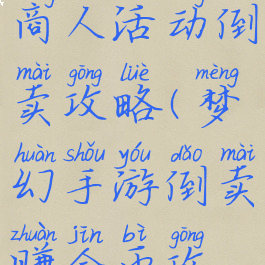 商人活动倒
mài gōng lüè mèng
卖攻略(梦
huàn shǒu yóu dǎo mài
幻手游倒卖
zhuàn jīn bì gōng
赚金币攻